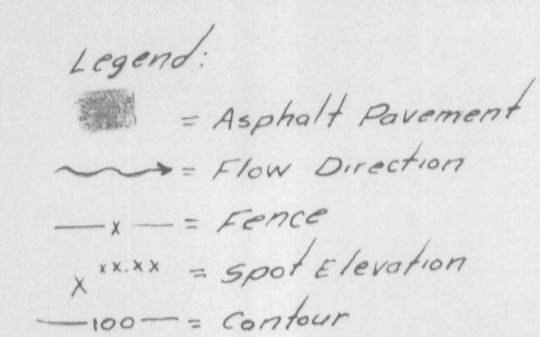 Legend:
= Asphalt Pavement
= Flow Direction
— x — = Fence
x xx.xx = Spot Elevation
—100— = Contour